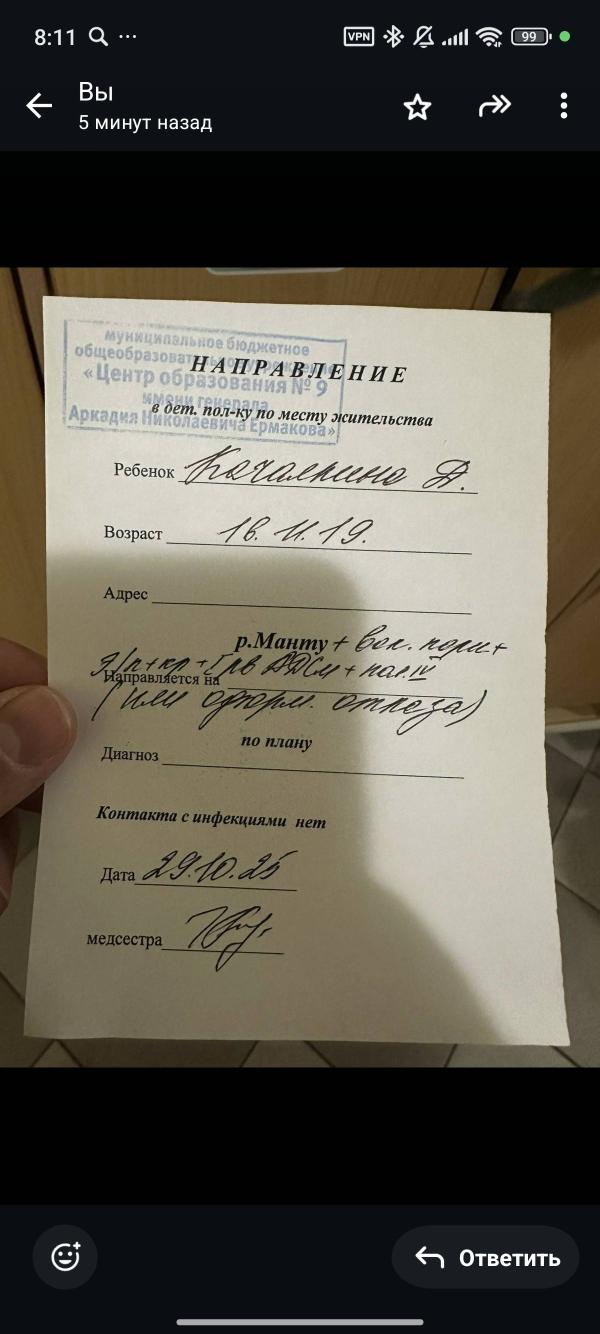 8:11
VPN
99
Вы
5 минут назад
муниципальное бюджетное
общеобразовательное учреждение
НАПРАВЛЕНИЕ
«Центр образования № 9
имени генерала
в дет. пол-ку по месту жительства
Аркадия Николаевича Ермакова»
Ребенок Качалкина Д.
Возраст 16.11.19.
Адрес
р.Манту +
+ кр + + пол. IV
Направляется на
(или оформ. отказа)
по плану
Диагноз
Контакта с инфекциями нет
Дата 29.10.25
медсестра
Ответить